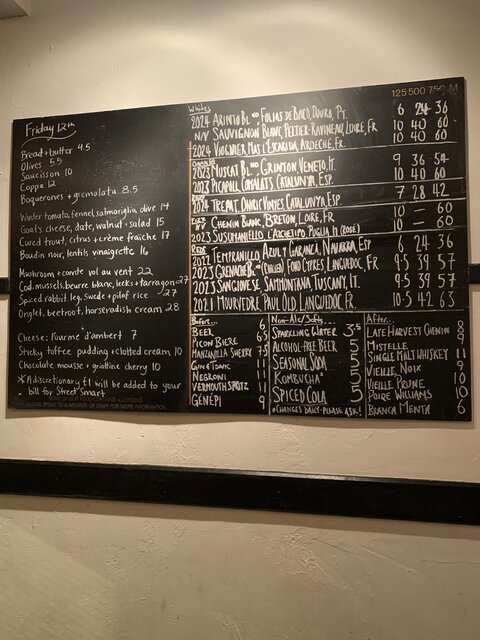 Friday 12th
Bread + butter 4.5
Olives 5.5
Saucisson 10
Coppa 12
Boquerones + gremolata 8.5
Winter tomato, fennel, salmoriglio, olive 14
Goat's cheese, date, walnut + salad 15
Cured trout, citrus + crème fraîche 17
Boudin noir, lentils, vinaigrette 16
Mushroom + comte vol au vent 22
Cod, mussels, beurre blanc, leeks + tarragon 27
Spiced rabbit leg, swede + pilaf rice 27
Onglet, beetroot, horseradish cream 28
Cheese: Fourme d'ambert 7
Sticky toffee pudding + clotted cream 10
Chocolate mousse + griottine cherry 10
* A discretionary £1 will be added to your
bill for Street Smart
PLEASE SPEAK TO A MEMBER OF STAFF FOR MORE INFORMATION
125 500 750 M
Whites
2024 Arinto Bl. Folias de Baco, Douro, Pt. 6 24 36
N/V Sauvignon Blanc, Peltier-Ravineau, Loire, Fr 10 40 60
2024 Viognier, Mas l'Escarida, Ardeche, Fr. 10 40 60
2023 Muscat Bl. Grinton, Veneto, It. 9 36 54
2023 Picapoll, Comalats, Catalunya, Esp. 10 40 60
2024 Trepat, Onric Vinyes, Catalunya, Esp 7 28 42
N/V Chenin Blanc, Breton, Loire, Fr 10 — 60
2023 Susumaniello, L'Archetipo, Puglia, It (Rose) 10 — 60
Reds
2022 Tempranillo, Azul y Garanca, Navarra, Esp 6 24 36
2023 Grenache Bl. (Chilled) Ford Cykes, Languedoc, Fr 9.5 39 57
2023 Sangiovese, Sammontana, Tuscany, It. 9.5 39 57
2021 Mourvedre, Paul Old, Languedoc, Fr. 10.5 42 63
Before...
Beer 6
Picon Biere 6.5
Manzanilla Sherry 7.5
Gin & Tonic 11
Negroni 11
Vermouth Spritz 11
Génépi 9
Non-Alc/Softs...
Sparkling Water 3.5
Alcohol-Free Beer 5
Seasonal Soda 5
Kombucha* 5
Spiced Cola 5
* Changes daily - please ask!
After...
Late Harvest Chenin 8
Mistelle 9
Single Malt Whiskey 11
Vieille Noix 9
Vieille Prune 10
Poire Williams 10
Branca Menta 6